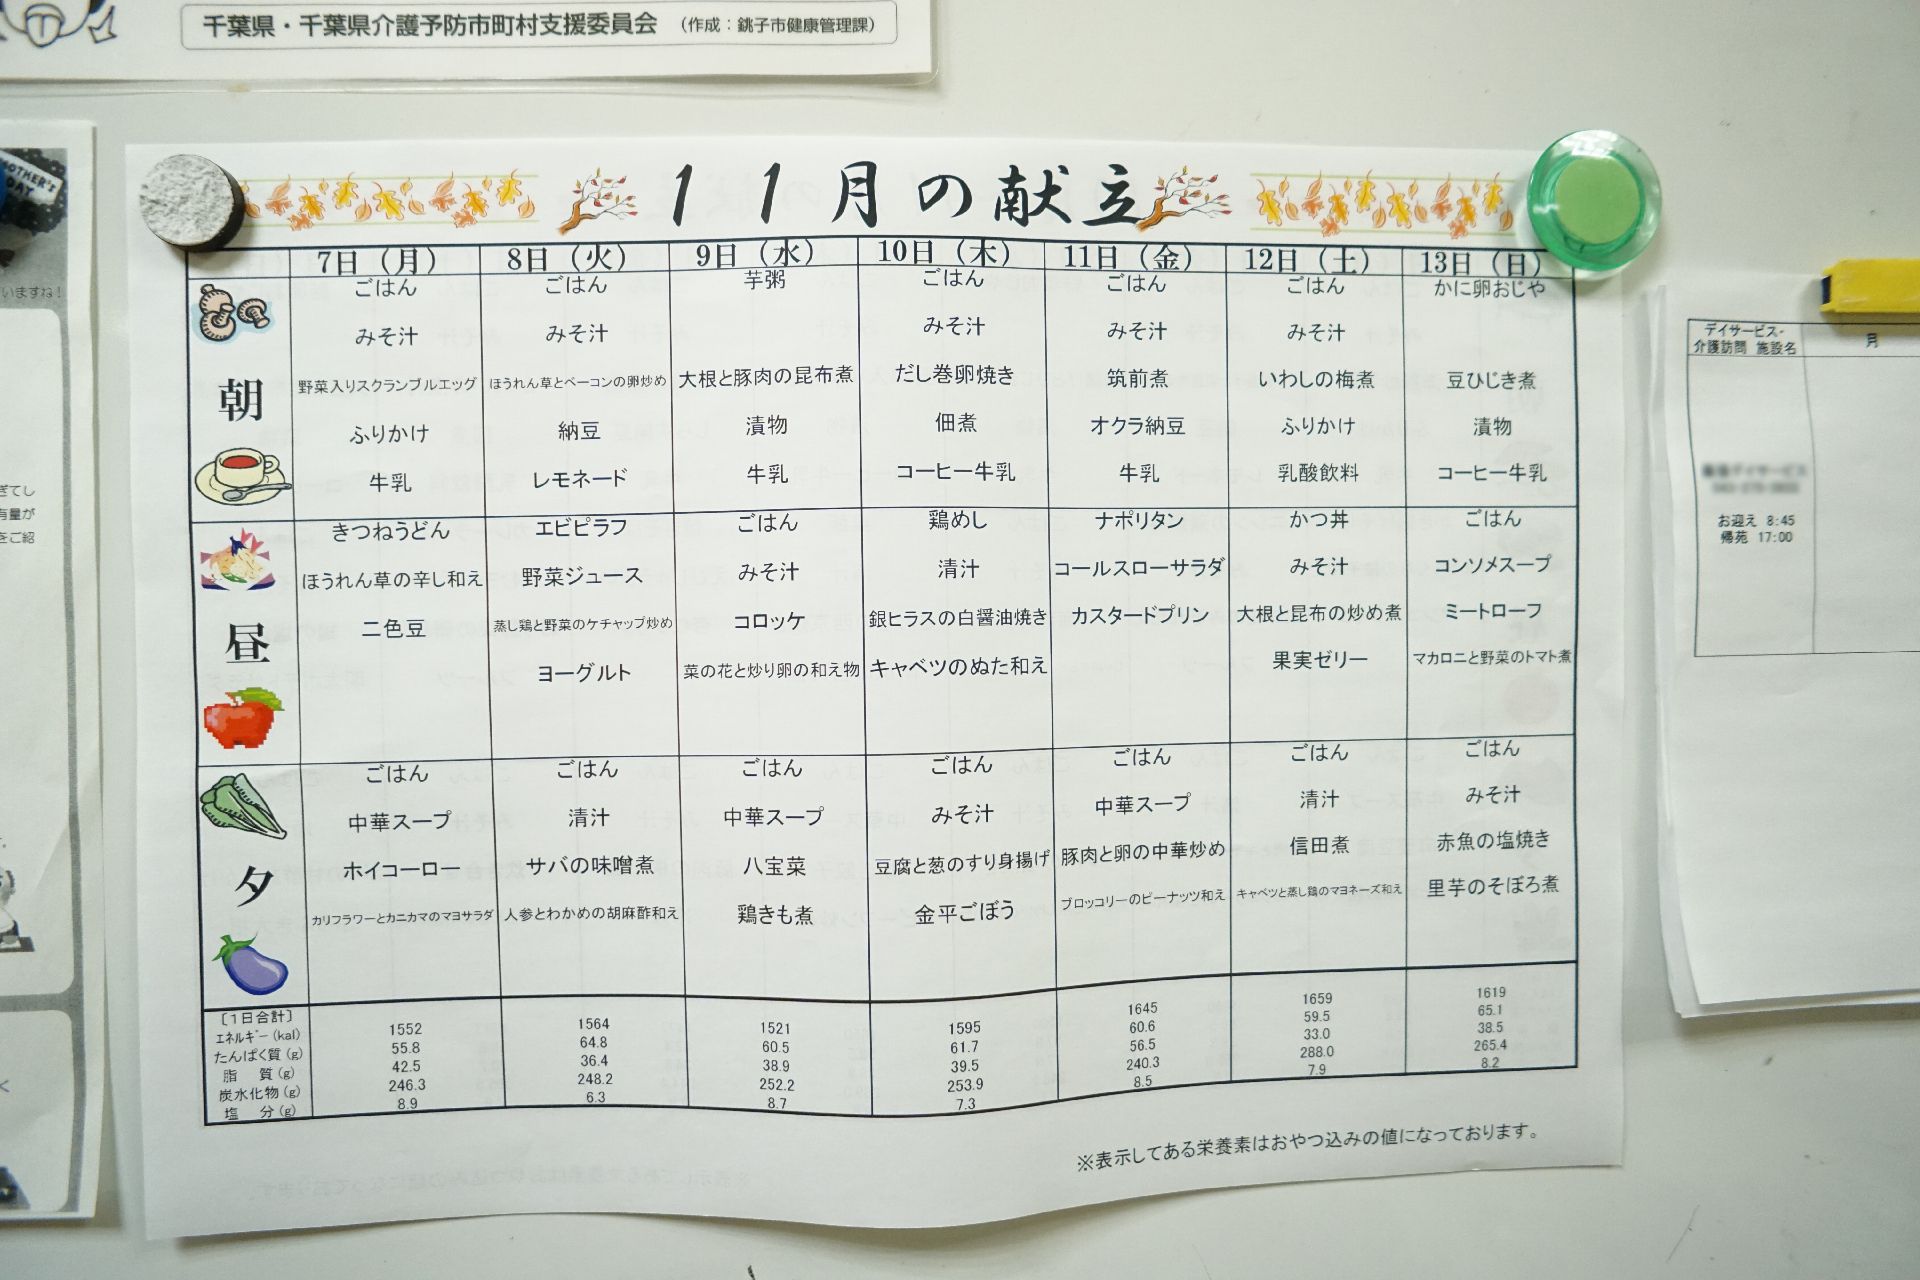 千葉県・千葉県介護予防市町村支援委員会 （作成：銚子市健康管理課）
MOTHER'S DAY
いますね！
ぎてし
有量が
をご紹
11月の献立
7日（月） 8日（火） 9日（水） 10日（木） 11日（金） 12日（土） 13日（日）
朝
ごはん ごはん 芋粥 ごはん ごはん ごはん かに卵おじや
みそ汁 みそ汁 みそ汁 みそ汁 みそ汁
野菜入りスクランブルエッグ ほうれん草とベーコンの卵炒め 大根と豚肉の昆布煮 だし巻卵焼き 筑前煮 いわしの梅煮 豆ひじき煮
ふりかけ 納豆 漬物 佃煮 オクラ納豆 ふりかけ 漬物
牛乳 レモネード 牛乳 コーヒー牛乳 牛乳 乳酸飲料 コーヒー牛乳
昼
きつねうどん エビピラフ ごはん 鶏めし ナポリタン かつ丼 ごはん
ほうれん草の辛し和え 野菜ジュース みそ汁 清汁 コールスローサラダ みそ汁 コンソメスープ
二色豆 蒸し鶏と野菜のケチャップ炒め コロッケ 銀ヒラスの白醤油焼き カスタードプリン 大根と昆布の炒め煮 ミートローフ
ヨーグルト 菜の花と炒り卵の和え物 キャベツのぬた和え 果実ゼリー マカロニと野菜のトマト煮
夕
ごはん ごはん ごはん ごはん ごはん ごはん ごはん
中華スープ 清汁 中華スープ みそ汁 中華スープ 清汁 みそ汁
ホイコーロー サバの味噌煮 八宝菜 豆腐と葱のすり身揚げ 豚肉と卵の中華炒め 信田煮 赤魚の塩焼き
カリフラワーとカニカマのマヨサラダ 人参とわかめの胡麻酢和え 鶏きも煮 金平ごぼう ブロッコリーのピーナッツ和え キャベツと蒸し鶏のマヨネーズ和え 里芋のそぼろ煮
［1日合計］
エネルギー(kal) 1552 1564 1521 1595 1645 1659 1619
たんぱく質(g) 55.8 64.8 60.5 61.7 60.6 59.5 65.1
脂 質(g) 42.5 36.4 38.9 39.5 56.5 33.0 38.5
炭水化物(g) 246.3 248.2 252.2 253.9 240.3 288.0 265.4
塩 分(g) 8.9 6.3 8.7 7.3 8.5 7.9 8.2
※表示してある栄養素はおやつ込みの値になっております。
デイサービス・
介護訪問 施設名
月
お迎え 8:45
帰苑 17:00